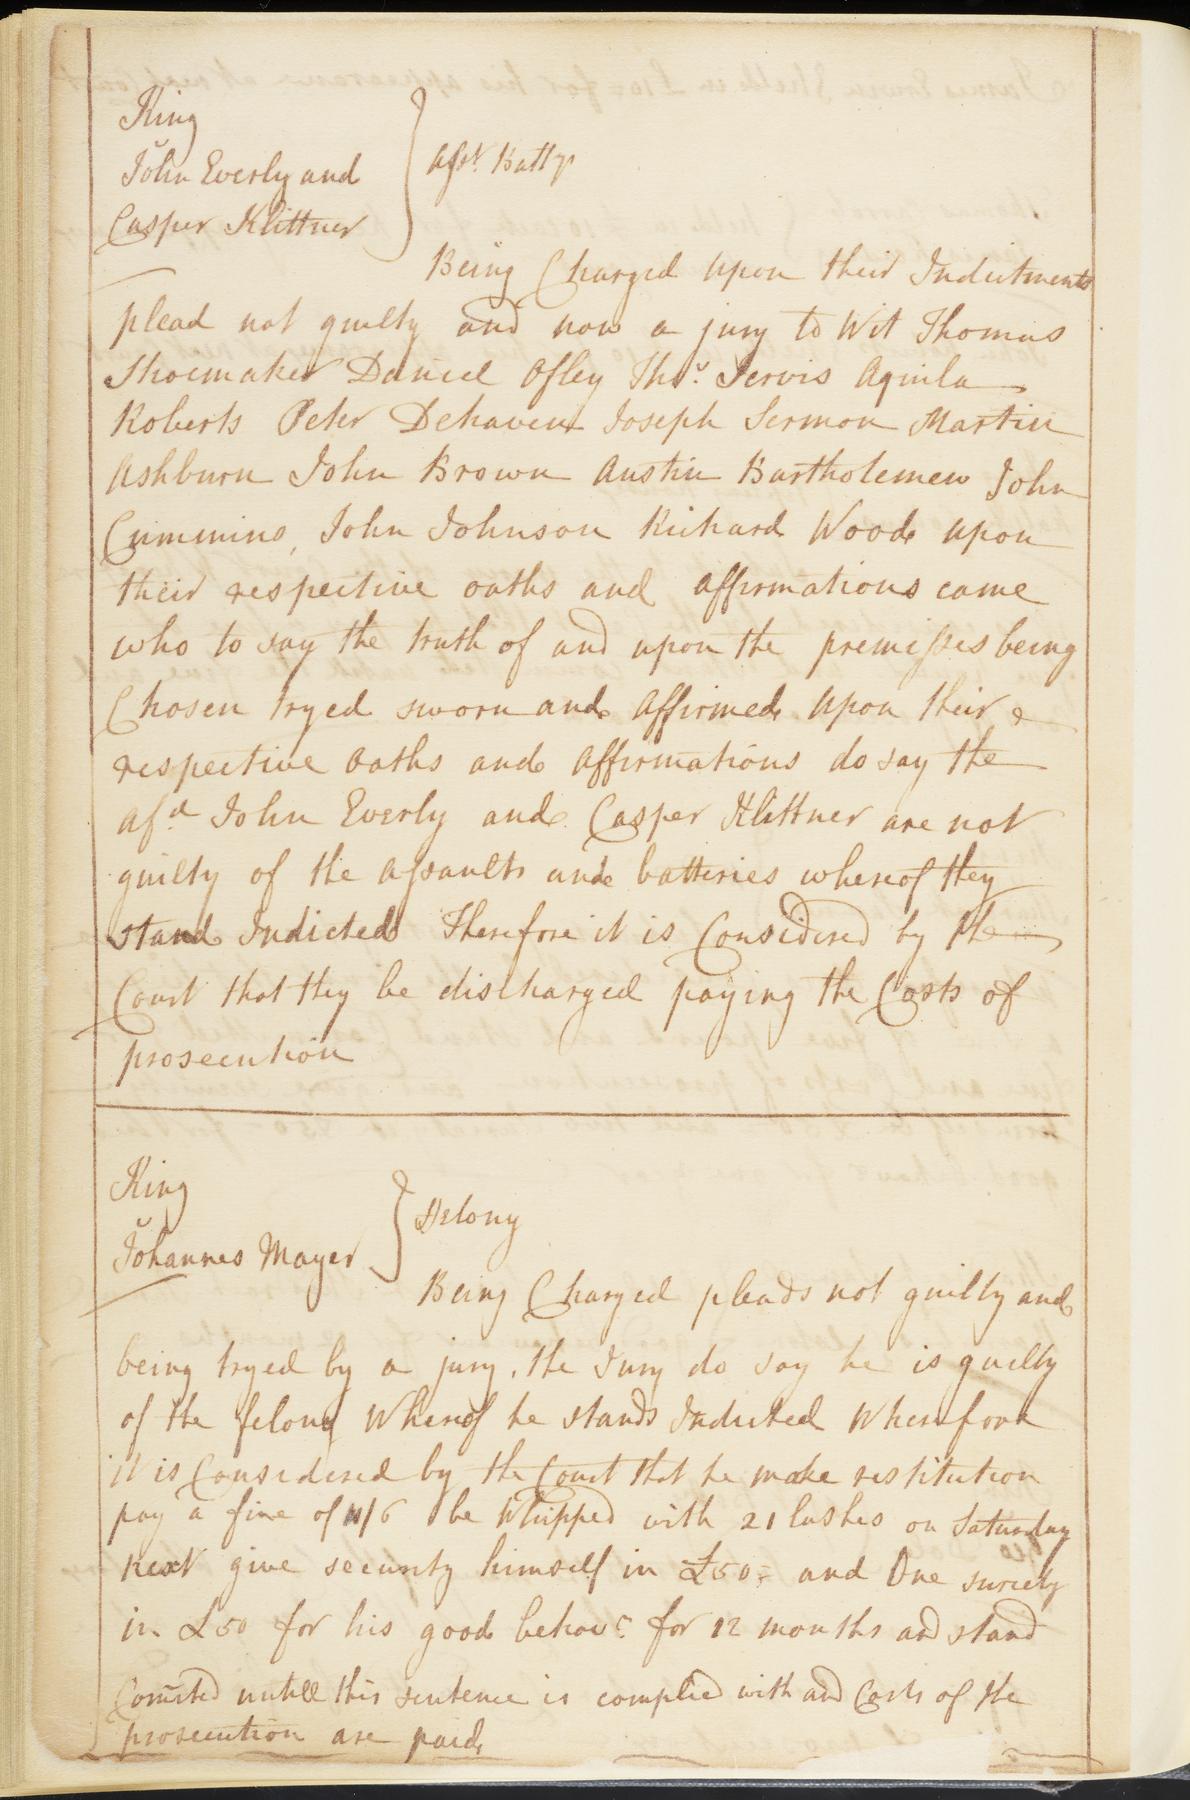 King
v
John Everly and
Casper Klittner
Asst. Batty
Being Charged upon their Indictments
plead not guilty and now a jury to Wit Thomas
Shoemaker Daniel Ofley Thos. Jervis Aquila
Roberts Peter Dehaven Joseph Sermon Martin
Ashburn John Brown Austin Bartholemew John
Cummins, John Johnson Richard Wood upon
their respective oaths and affirmations came
who to say the truth of and upon the premisses being
Chosen tryed sworn and affirmed upon their
respective oaths and affirmations do say the
afd. John Everly and Casper Klittner are not
guilty of the assaults and batteries whereof they
stand Indicted Therefore it is Considered by the
Court that they be discharged paying the Costs of
prosecution
King
v
Johannes Mayer
Felony
Being Charged pleads not guilty and
being tryed by a jury, the Jury do say he is guilty
of the felony Whereof he stands Indicted Wherefore
it is Considered by the Court that he make restitution
pay a fine of /6 be Whipped with 21 lashes on Saturday
next give security himself in £50 = and One surety
in £50 for his good behavr. for 12 months and stand
Comited untill this sentence is complied with and Costs of the
prosecution are paid